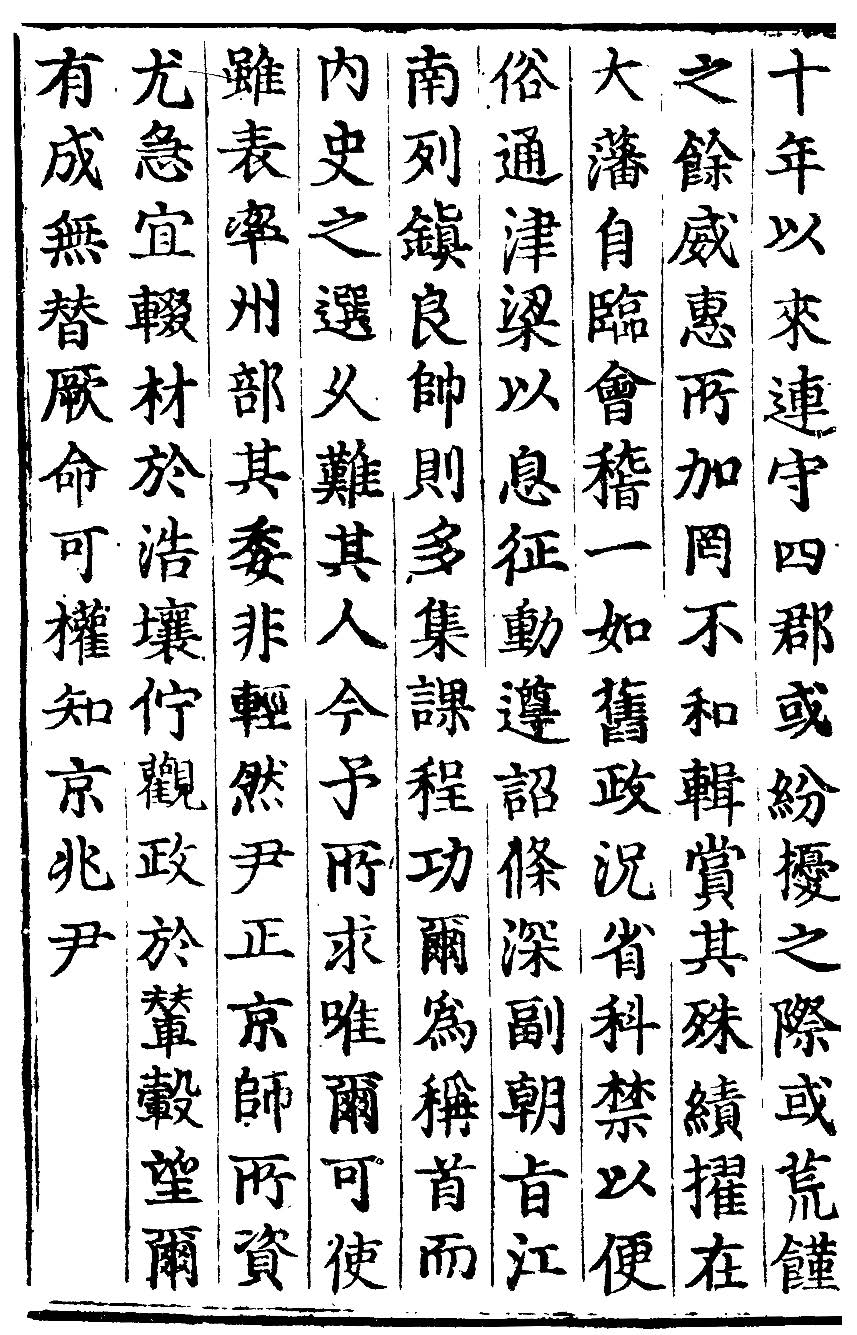 十年以來連守四郡或紛擾之際或荒饉
之餘威惠所加罔不和輯賞其殊績擢在
大藩自臨會稽一如舊政況省科禁以便
俗通津梁以息征動遵詔條深副朝旨江
南列鎮良帥則多集課程功爾為稱首而
內史之選乆難其人今予所求唯爾可使
雖表率州部其委非輕然尹正京師所資
尤急宜輟材於浩壤佇觀政於輦轂望爾
有成無替厥命可權知京兆尹